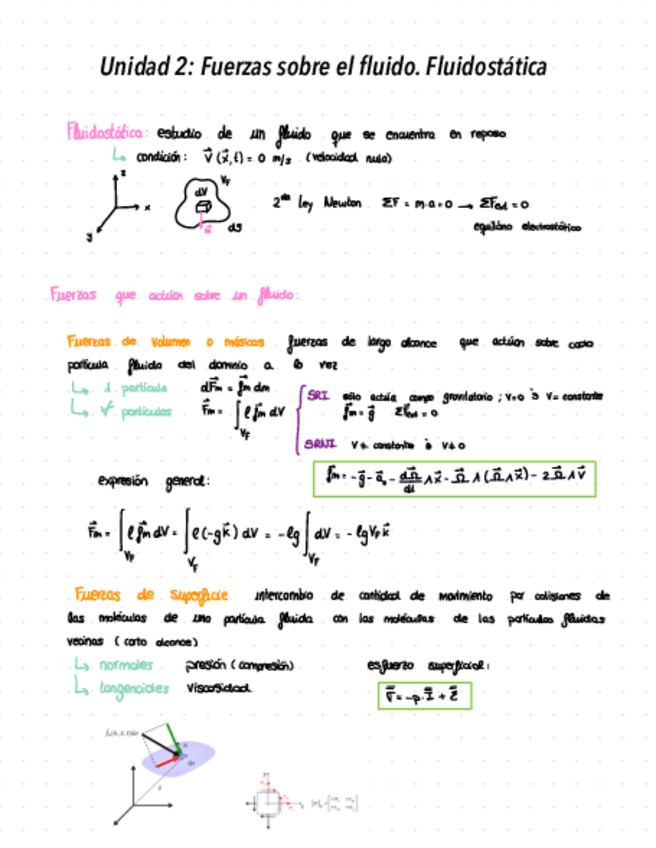 Unidad 2: Fuerzas sobre el fluido. Fluidostática
Fluidostática: estudio de un fluido que se encuentra en reposo
↳ condición: v⃗ (x⃗,t) = 0 m/s (velocidad nula)
z x y dV V_F n⃗ dS
2ª ley Newton ΣF = m·a = 0 → ΣF_ext = 0
equilibrio electrostático
Fuerzas que actúan sobre un fluido:
Fuerzas de volumen o másicas fuerzas de largo alcance que actúan sobre cada
partícula fluida del dominio a la vez
↳ 1 partícula dF⃗m = f⃗m dm
↳ V partículas F⃗m = ∫_{V_F} ρ f⃗m dV
SRI sólo actúa campo gravitatorio ; v=0 ó v= constante
f⃗m = g⃗ ΣF⃗ext = 0
SRNI v≠ constante ó v≠0
expresión general:
f⃗m = -g⃗ - a⃗₀ - dΩ⃗/dt ∧ x⃗ - Ω⃗ ∧ (Ω⃗ ∧ x⃗) - 2Ω⃗ ∧ v⃗
F⃗m = ∫_{V_F} ρ f⃗m dV = ∫_{V_F} ρ(-g k⃗) dV = -ρg ∫_{V_F} dV = -ρg V_F k⃗
Fuerzas de superficie intercambio de cantidad de movimiento por colisiones de
las moléculas de una partícula fluida con las moléculas de las partículas fluidas
vecinas (corto alcance)
↳ normales presión (compresión)
↳ tangenciales viscosidad
esfuerzo superficial:
τ̿ = -p·I̿ + τ̿